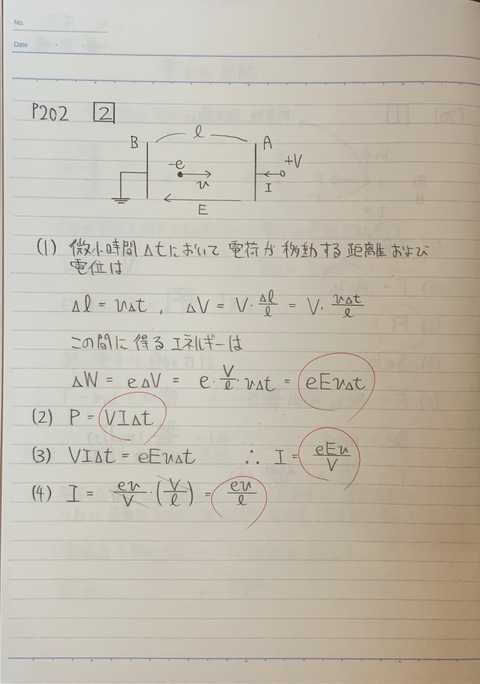 No.
Date
P202 2
l
B A
-e +V
v I
E
(1) 微小時間Δtにおいて電荷が移動する距離および
電位は
Δl = vΔt , ΔV = V・Δl/l = V・vΔt/l
この間に得るエネルギーは
ΔW = eΔV = e・V/l・vΔt = eEvΔt
(2) P = VIΔt
(3) VIΔt = eEvΔt ∴ I = eEv/V
(4) I = ev/V・(V/l) = ev/l